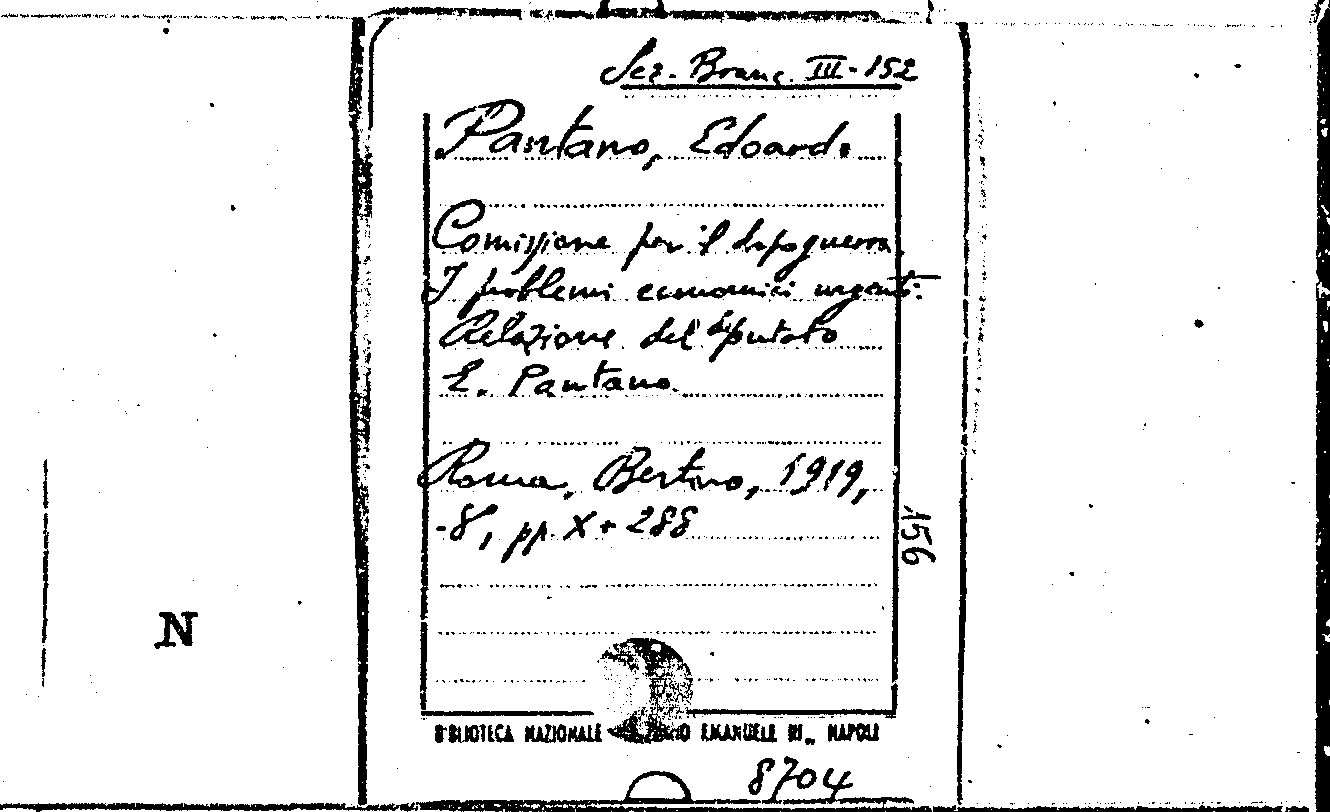 Sez. Branc. III-152
Pantano, Edoardo
Comissione per il dopoguerra.
I problemi economici urgenti.
Relazione del deputato
E. Pantano.
Roma, Bertero, 1919,
-8°, pp. X + 288
156
N
BIBLIOTECA NAZIONALE EMANUELE III„ NAPOLI
8704